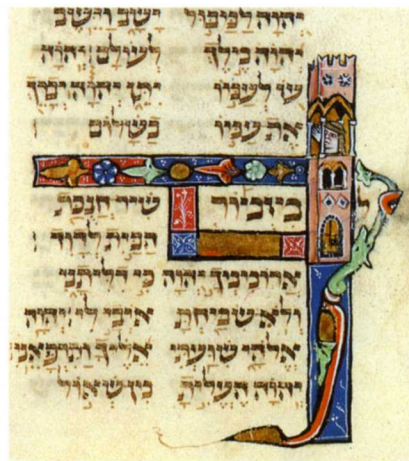 יהוה למבול ישב וישב
יהוה מלך לעולם יהוה
עז לעמו יתן יהוה יברך
את עמו בשלום
מזמור שיר חנכת
הבית לדוד
ארוממך יהוה כי דליתני
ולא שמחת איבי לי יהוה
אלהי שועתי אליך ותרפאני
יהוה העלית מן שאול